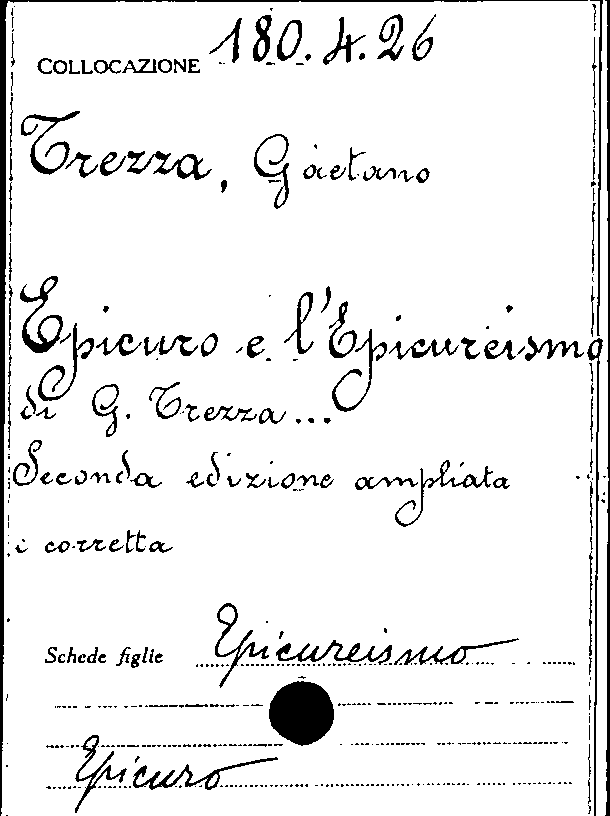 COLLOCAZIONE 180.4.26
Trezza, Gaetano
Epicuro e l'Epicureismo
di G. Trezza...
Seconda edizione ampliata
e corretta
Schede figlie Epicureismo
Epicuro